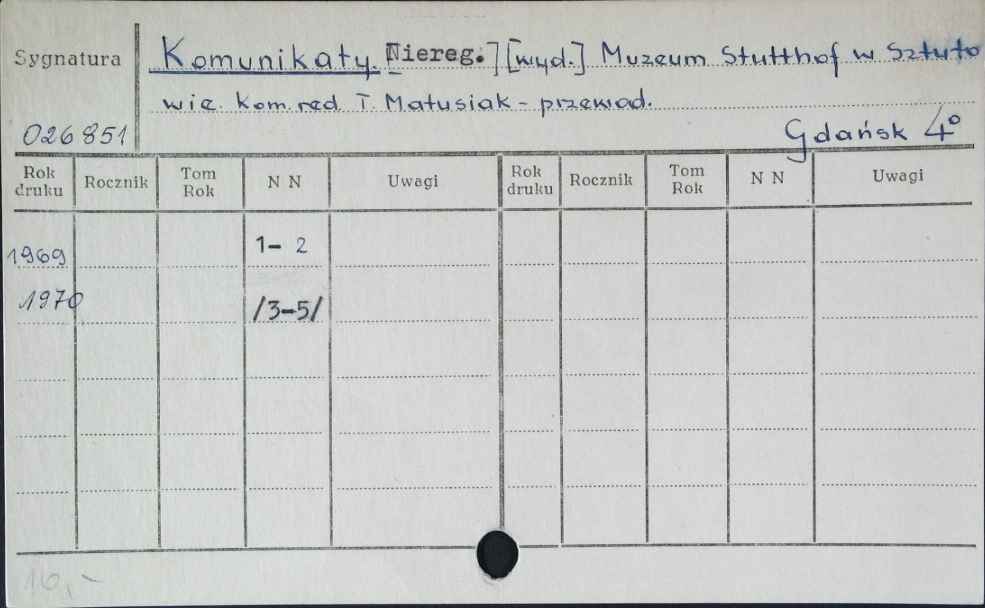 Sygnatura
Komunikaty. [Niereg.] [wyd.] Muzeum Stutthof w Sztuto
wie. Kom. red. T. Matusiak - przewod.
026851
Gdańsk 4°
Rok druku Rocznik Tom Rok N N Uwagi Rok druku Rocznik Tom Rok N N Uwagi
1969 1-2
1970 /3-5/
10,-